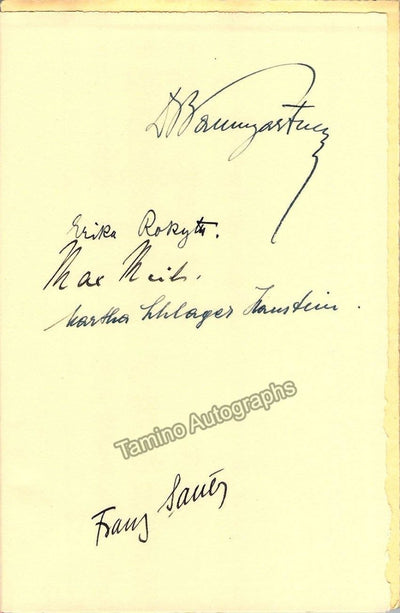 D Baumgartner
Erika Rokyta.
Max Meili.
Martha Schlager Haustein.
Tamino Autographs
Franz Sauer